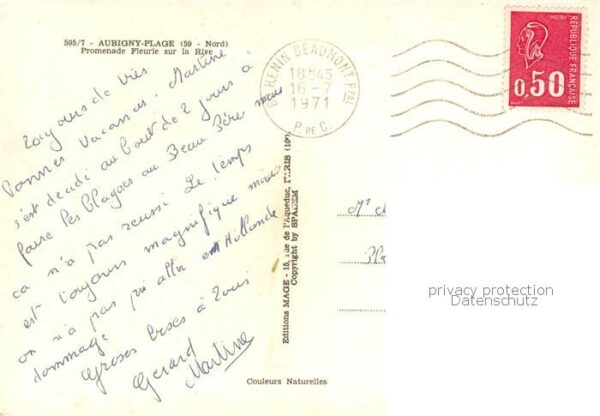 595/7 - AUBIGNY-PLAGE (59 - Nord)
Promenade Fleurie sur la Rive
de très
Bonnes Vacances. Martine
s'est décidé au bout de 2 jours à
faire les blagues au Beau Père mais
ca n'a pas reussi Le temps
est toujours magnifique mais
on n'a pas pu aller en Hollande
dommage
Groses bises à tous
Gerard
Martine
HENIN BEAUMONT PPAL
18H45
16-7
1971
P. DE C.
POSTES
REPUBLIQUE FRANÇAISE
0,50
Editions MAGE - 15, rue de l'Aqueduc, PARIS (10e)
Copyright by SPADEM
privacy protection
Datenschutz
Couleurs Naturelles